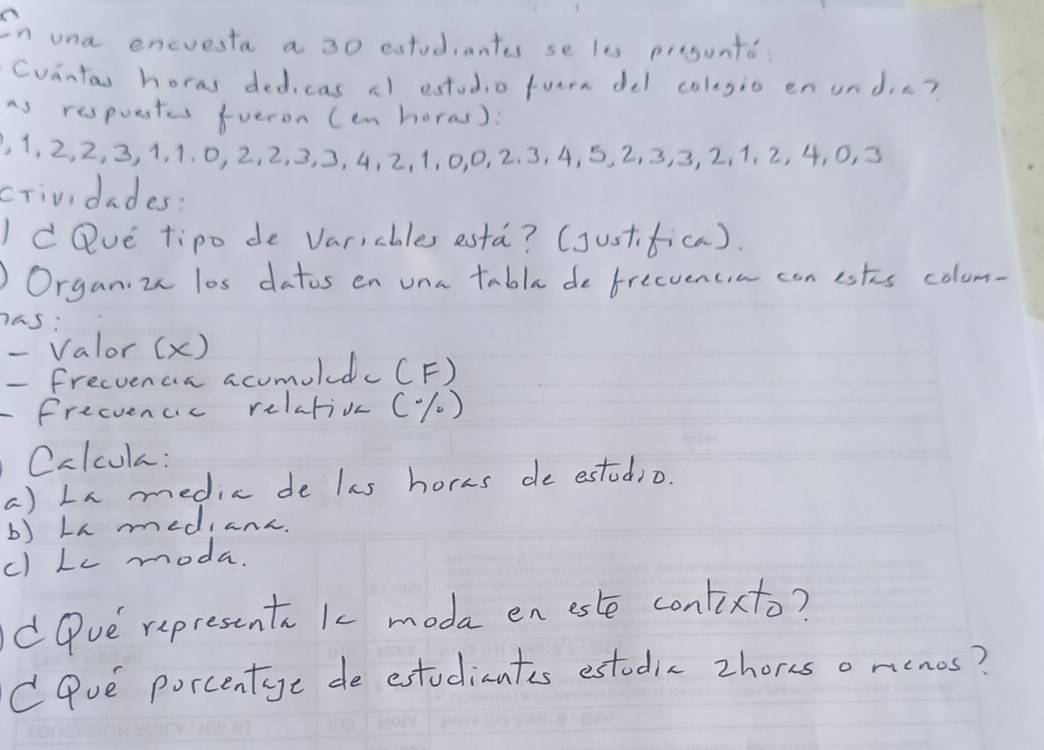 En una encuesta a 30 estudiantes se les preguntó:
Cuántas horas dedicas al estudio fuera del colegio en un dia?
as respuestas fueron (en horas):
, 1, 2, 2, 3, 1, 1, 0, 2, 2, 3, 3, 4, 2, 1, 0, 0, 2, 3, 4, 5, 2, 3, 3, 2, 1, 2, 4, 0, 3
ctividades:
) ¿Qué tipo de Variables está? (Justifica).
) Organiza los datos en una tabla de frecuencia con estas colum-
nas:
- Valor (x)
- frecuencia acumulada (F)
- frecuencia relativa (%)
) Calcula:
a) La media de las horas de estudio.
b) La mediana.
c) La moda.
) ¿Qué representa la moda en este contexto?
) ¿Qué porcentaje de estudiantes estudia 2horas o menos?